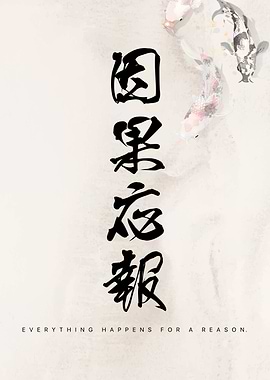 因果応報
EVERYTHING HAPPENS FOR A REASON.